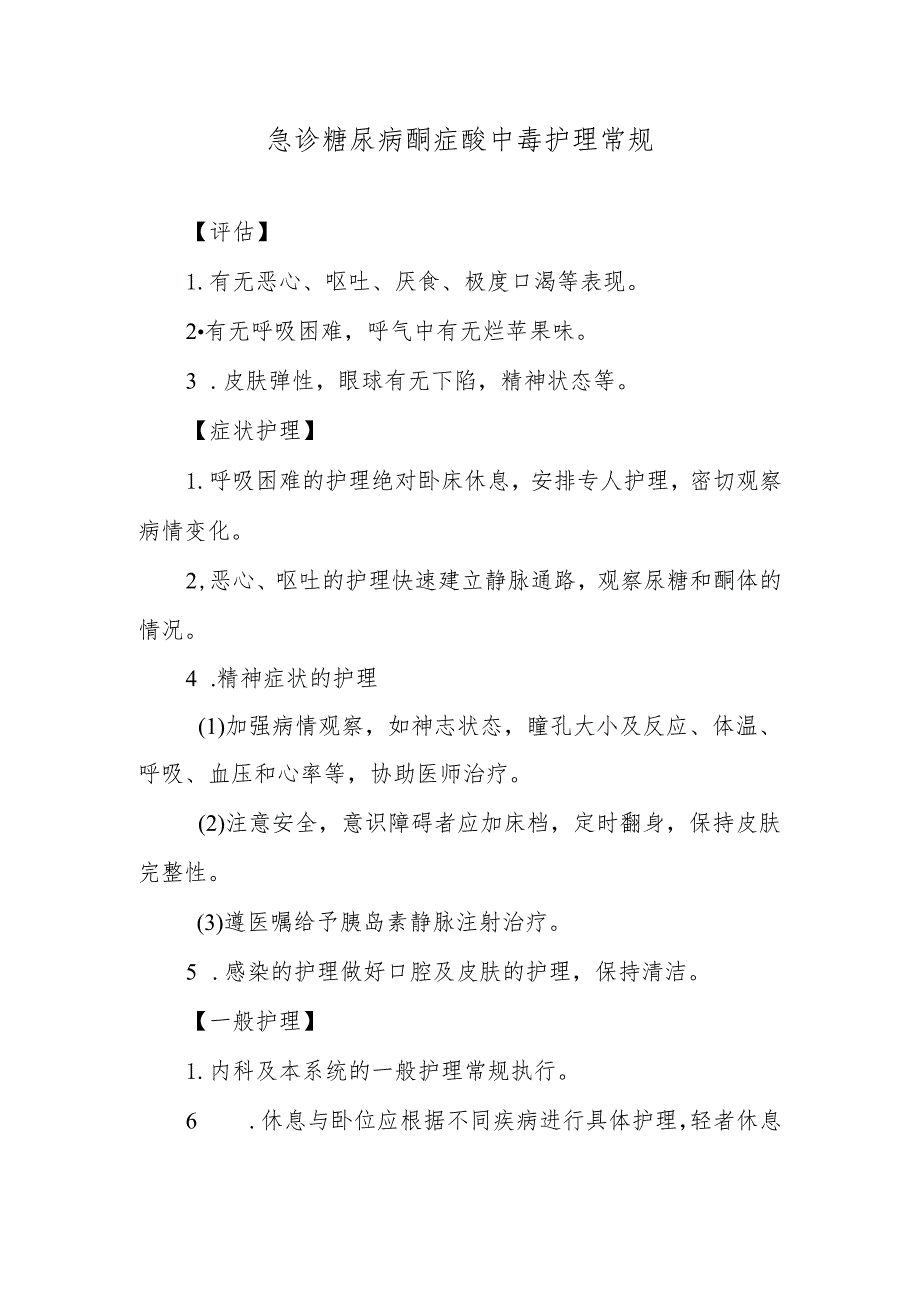 急诊糖尿病酮症酸中毒护理常规
【评估】
1. 有无恶心、呕吐、厌食、极度口渴等表现。
2•有无呼吸困难，呼气中有无烂苹果味。
3 . 皮肤弹性，眼球有无下陷，精神状态等。
【症状护理】
1. 呼吸困难的护理绝对卧床休息，安排专人护理，密切观察
病情变化。
2,恶心、呕吐的护理快速建立静脉通路，观察尿糖和酮体的
情况。
4 .精神症状的护理
(1)加强病情观察，如神志状态，瞳孔大小及反应、体温、
呼吸、血压和心率等，协助医师治疗。
(2)注意安全，意识障碍者应加床档，定时翻身，保持皮肤
完整性。
(3)遵医嘱给予胰岛素静脉注射治疗。
5 . 感染的护理做好口腔及皮肤的护理，保持清洁。
【一般护理】
1. 内科及本系统的一般护理常规执行。
6 . 休息与卧位应根据不同疾病进行具体护理,轻者休息